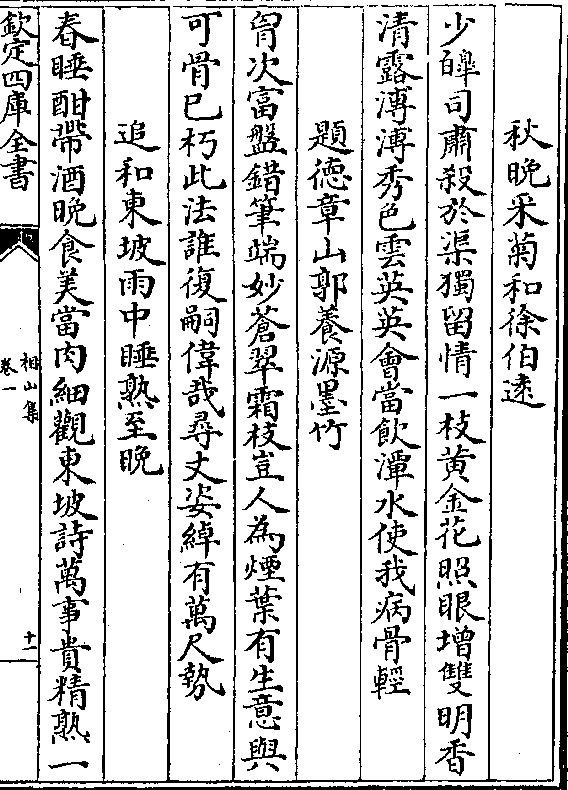 秋晩采菊和徐伯逺
少皥司肅殺於渠獨留情一枝黄金花照眼增雙明香
清露漙漙秀色雲英英會當飲潭水使我病骨輕
題德章山郭養源墨竹
胷次富盤錯筆端妙蒼翠霜枝豈人為煙葉有生意與
可骨已朽此法誰復嗣偉哉尋丈姿綽有萬尺勢
追和東坡雨中睡熟至晩
春睡酣帶酒晩食美當肉細觀東坡詩萬事貴精熟一
欽定四庫全書
相山集
卷一
十一